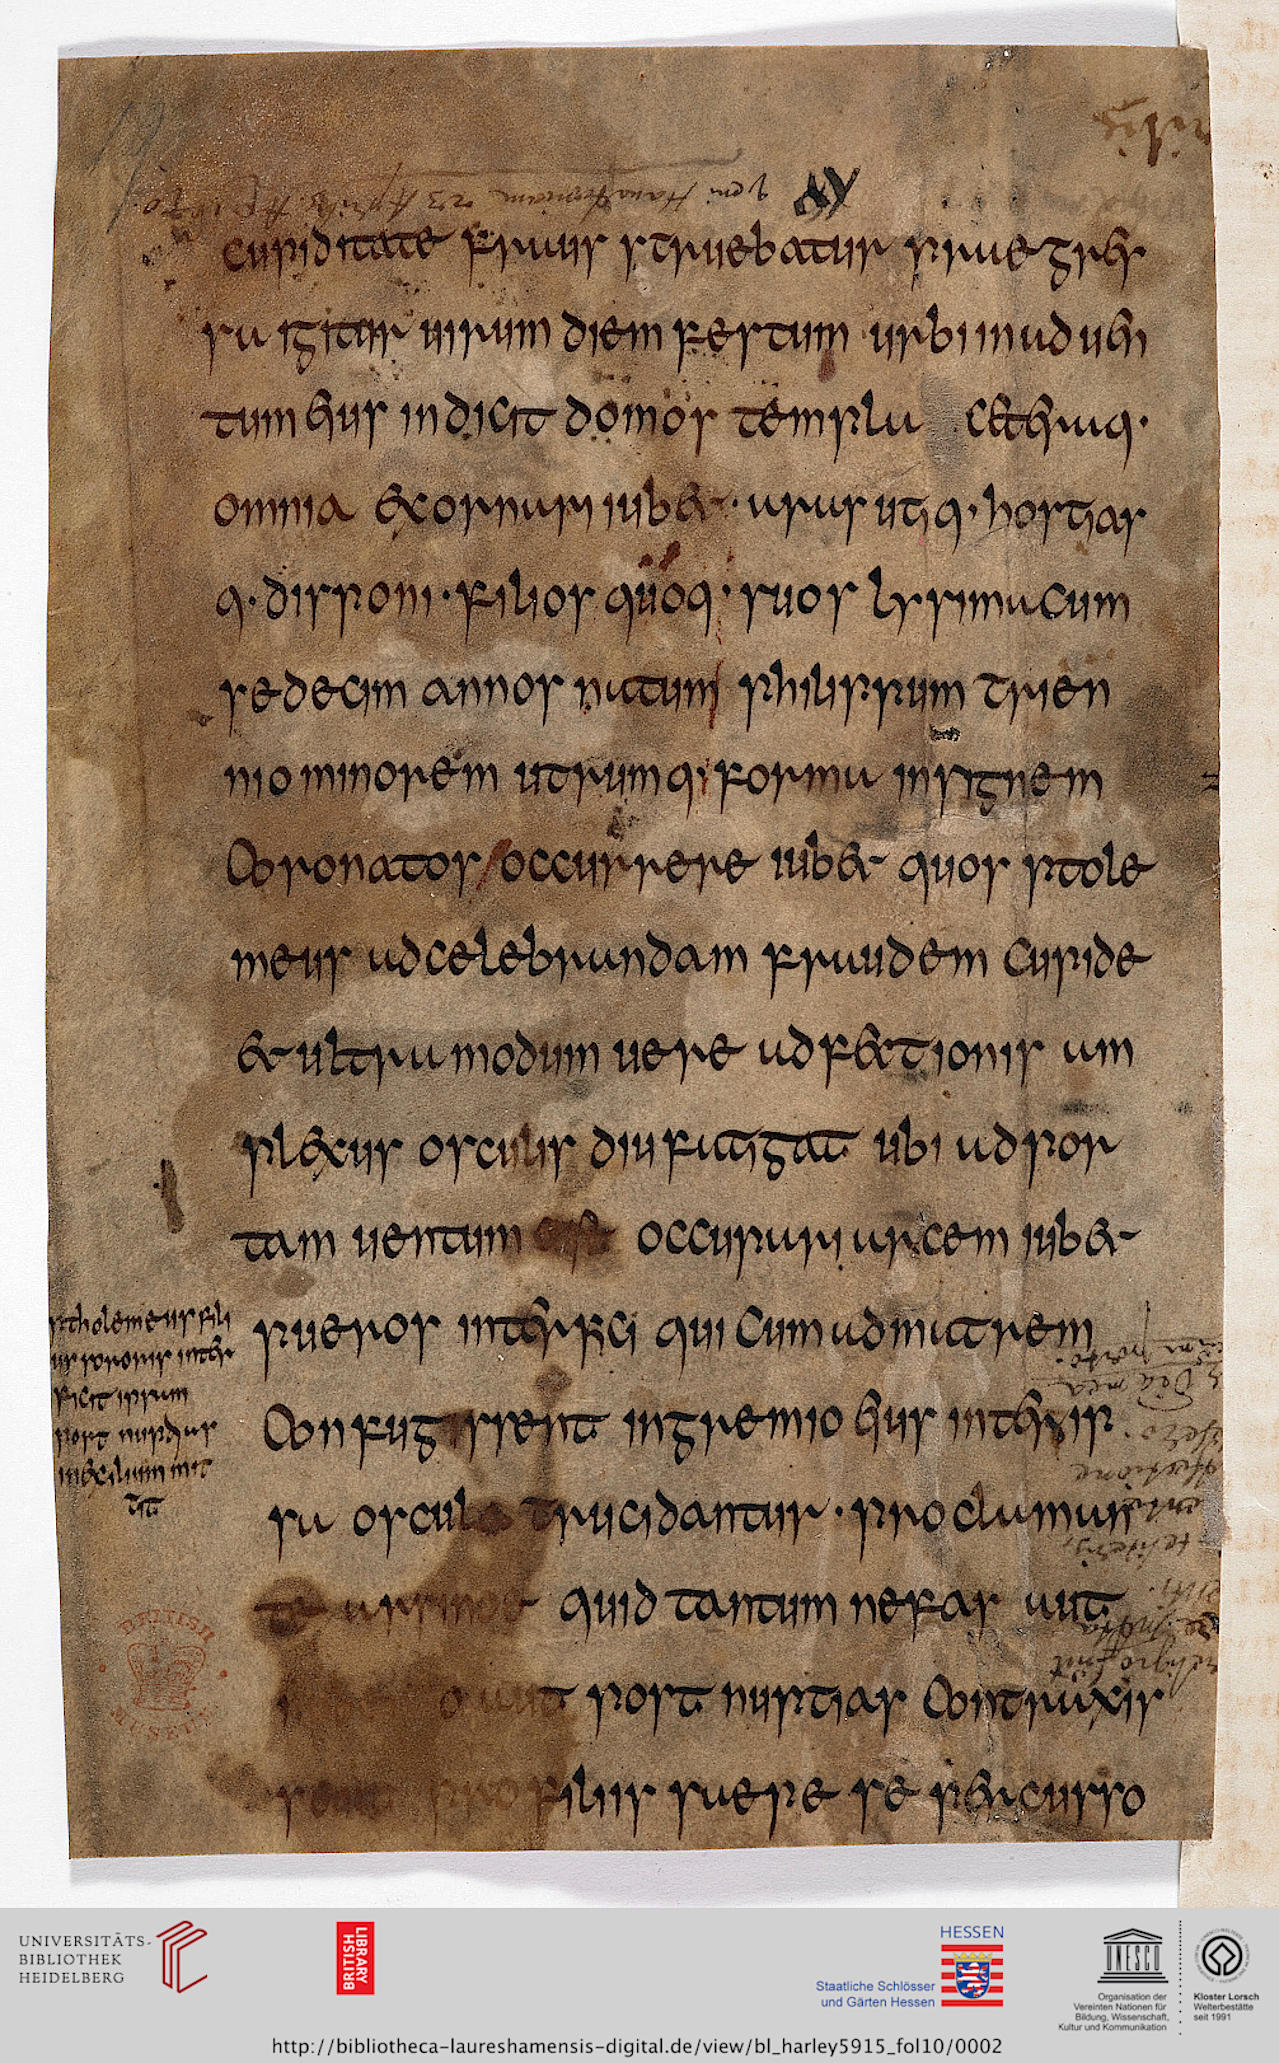 cupiditate fraus struebatur
sa igitur uirum diem festum urbi in aduen
tum eius indicit domos templa ceteraq·
omnia exornari iubet · aras ubiq· hostias
q· disponi · filios quoq· suos lysimacum
sedecim annos natum philippum trien
nio minorem utrumq; forma insignem
Coronatos occurrere iubet quos ptole
meus ad celebrandam fraudem cupide
et ultra modum uere adfectionis am
plexus osculis diu fatigat ubi ad por
tam uentum est occupari arcem iubet
pueros interfici qui cum ad matrem
Confugissent in gremio eius inter ip
sa oscula trucidantur · proclaman
te arsinoe quid tantum nefas aut
o aut post nuptias Contraxis
set pro filiis saepe se percusso
ptholemeus fili
us sororis inter
ficit ipsum
post nuptias
in exilium mit
tit
BRITISH
MUSEUM
UNIVERSITÄTS-
BIBLIOTHEK
HEIDELBERG
BRITISH
LIBRARY
HESSEN
Staatliche Schlösser
und Gärten Hessen
UNESCO
Organisation der
Vereinten Nationen für
Bildung, Wissenschaft,
Kultur und Kommunikation
Kloster Lorsch
Welterbestätte
seit 1991
http://bibliotheca-laureshamensis-digital.de/view/bl_harley5915_fol10/0002